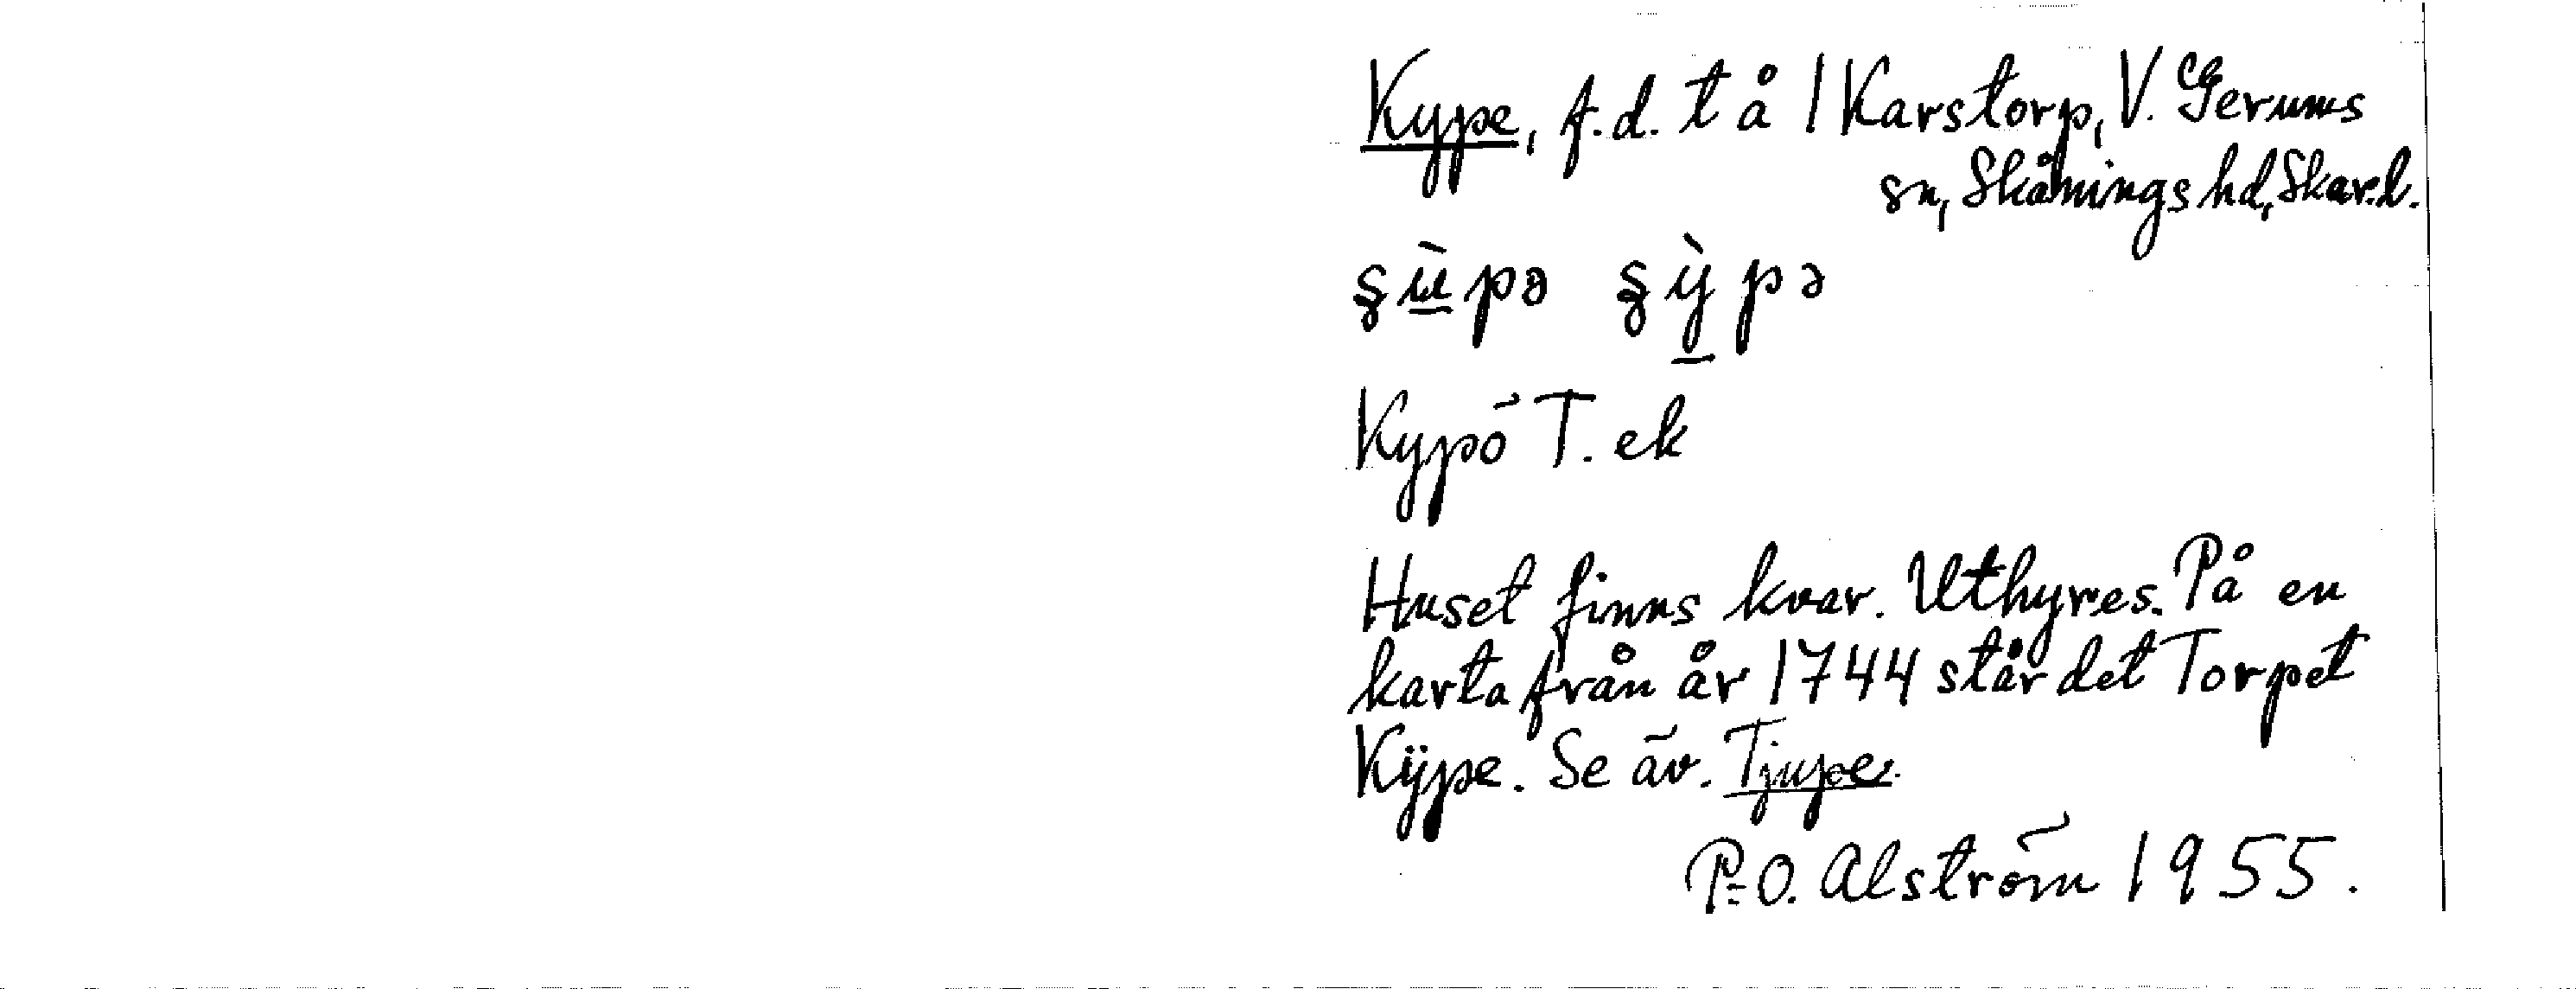 Kype, f.d. t å 1 Karstorp, V. Gerums
sn, Skånings hd, Skar.l.
Kypö T. ek
Huset finns kvar. Uthyres. På en
karta från år 1744 står det Torpet
Kÿpe. Se äv. Tjupe.
P-O. Alström 1955.